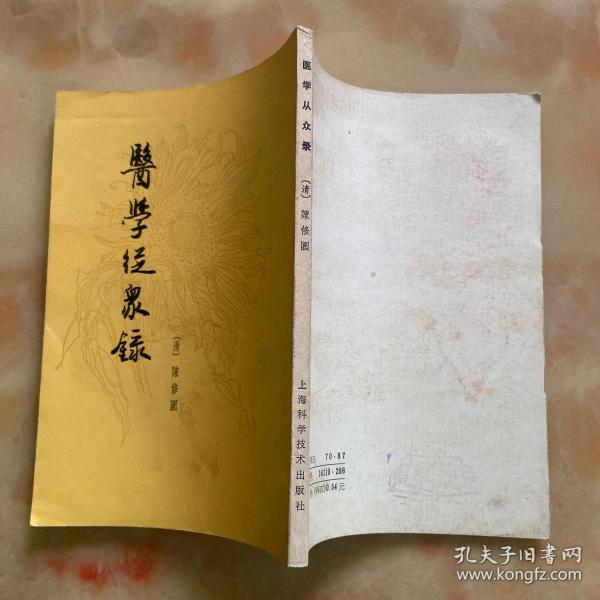 醫學從衆錄
〔清〕陳修園
医学从众录
〔清〕陳修園
上海科学技术出版社
70·87
14119·288
0.54元
孔夫子旧书网
www.kongfz.com